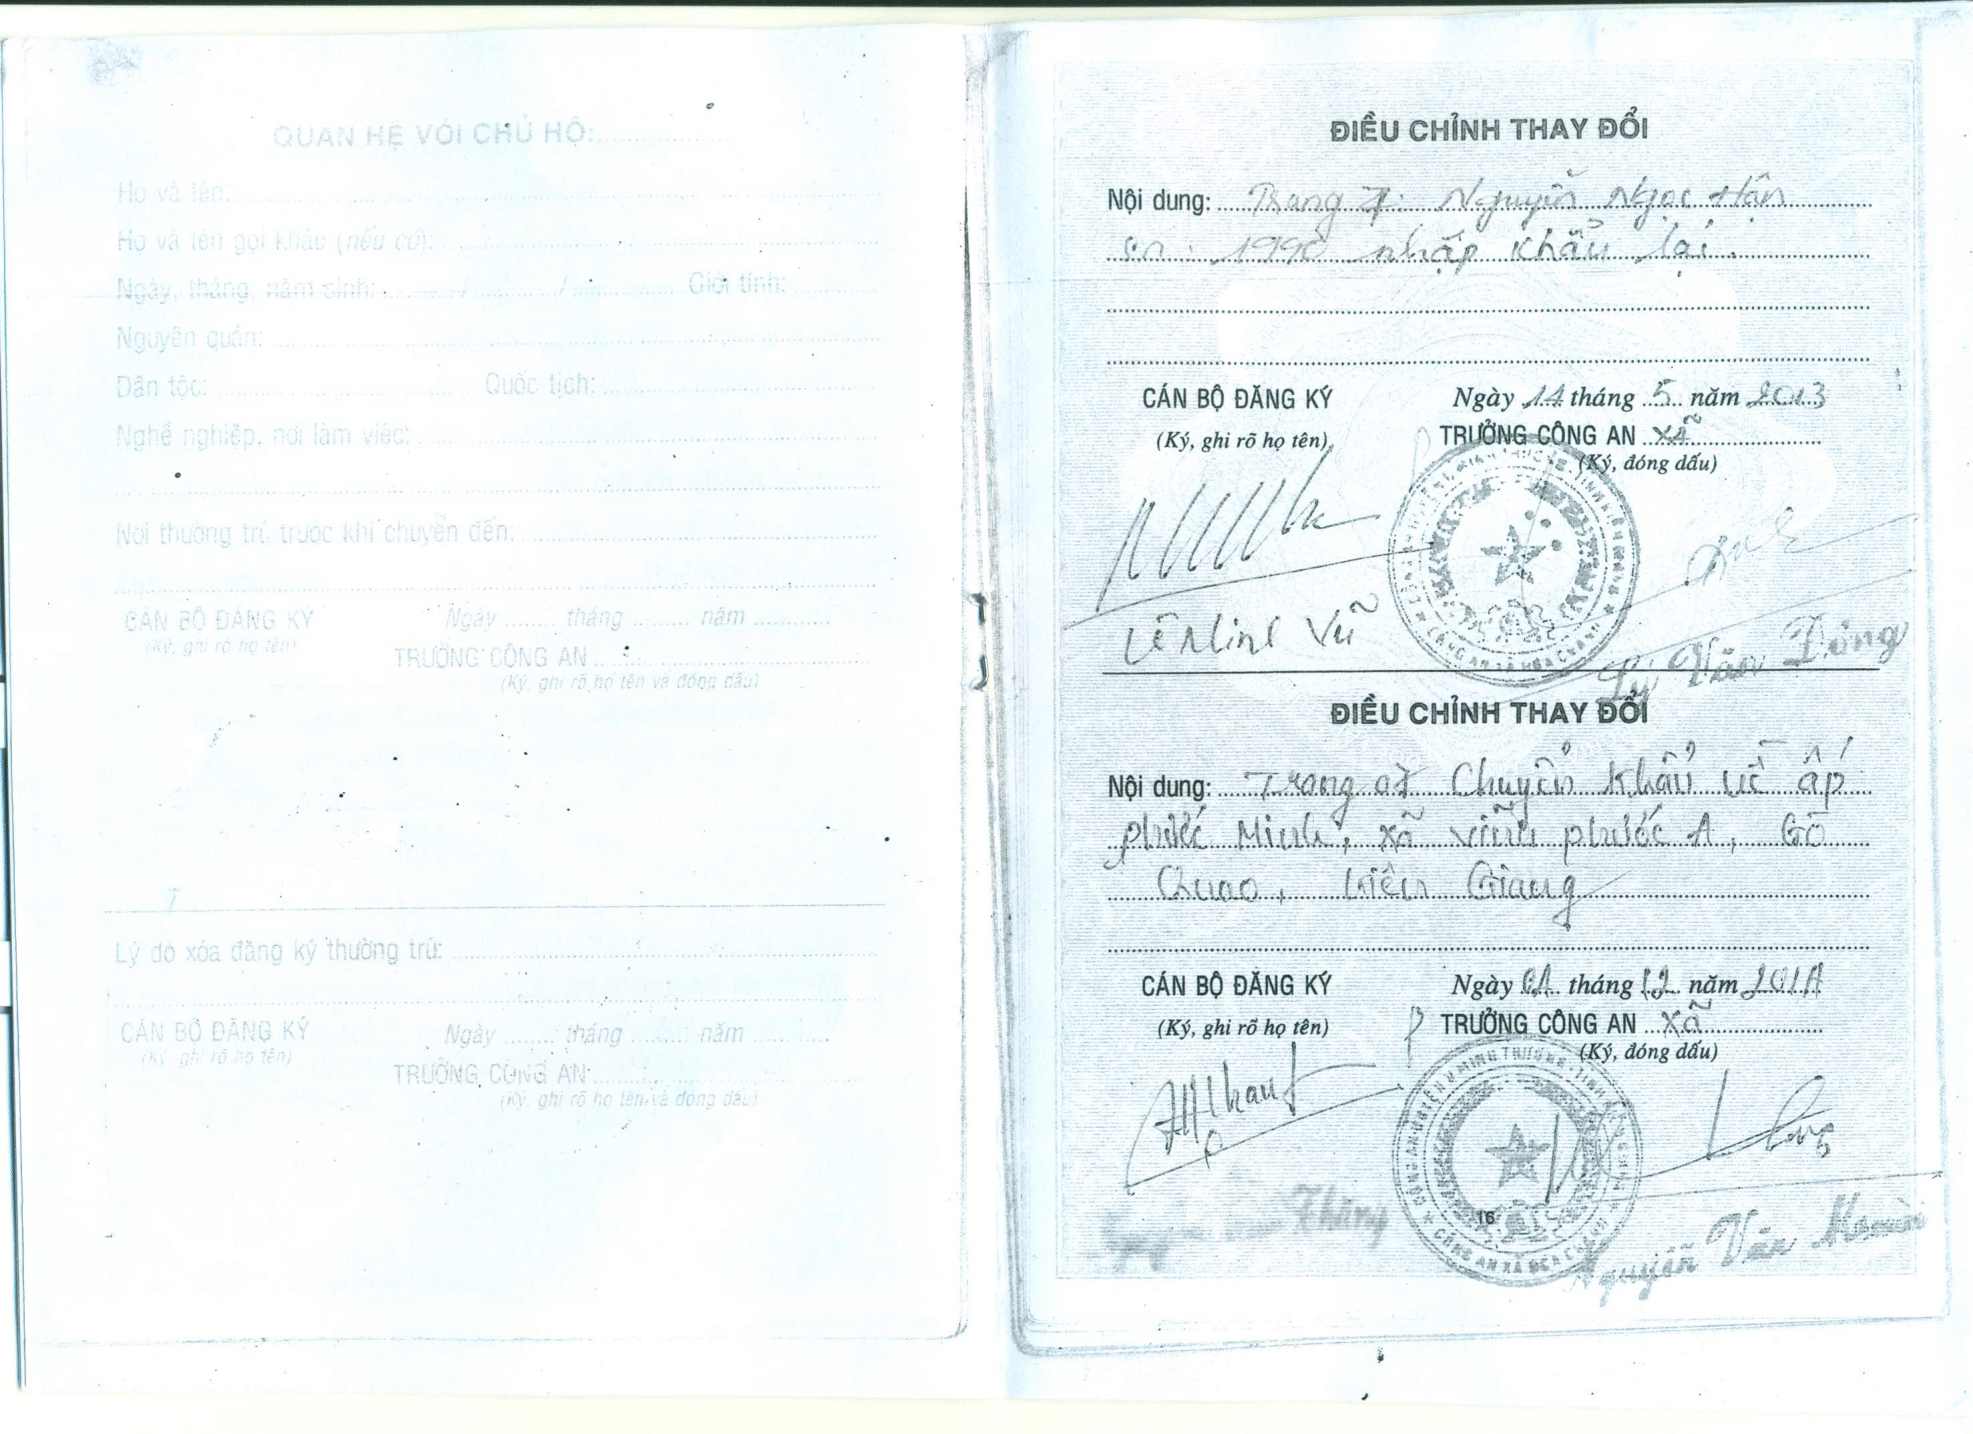 QUAN HỆ VỚI CHỦ HỘ:
Họ và tên:
Họ và tên gọi khác (nếu có):
Ngày, tháng, năm sinh: / / Giới tính:
Nguyên quán:
Dân tộc: Quốc tịch:
Nghề nghiệp, nơi làm việc:
Nơi thường trú trước khi chuyển đến:
CÁN BỘ ĐĂNG KÝ Ngày tháng năm
(Ký, ghi rõ họ tên)
TRƯỞNG CÔNG AN
(Ký, ghi rõ họ tên và đóng dấu)
Lý do xóa đăng ký thường trú:
CÁN BỘ ĐĂNG KÝ Ngày tháng năm
(Ký, ghi rõ họ tên)
TRƯỞNG CÔNG AN
(Ký, ghi rõ họ tên và đóng dấu)
ĐIỀU CHỈNH THAY ĐỔI
Nội dung: Trang 7: Nguyễn Ngọc Hân
sn: 1990 nhập khẩu lại.
CÁN BỘ ĐĂNG KÝ Ngày 14 tháng 5 năm 2013
(Ký, ghi rõ họ tên) TRƯỞNG CÔNG AN xã
(Ký, đóng dấu)
CÔNG AN XÃ HÒA CHÁNH
Lê Minh Vũ
Lý Văn Đông
ĐIỀU CHỈNH THAY ĐỔI
Nội dung: Trang 07 Chuyển khẩu về ấp
phước Minh, xã vĩnh phước A, Gò
Quao, Kiên Giang
CÁN BỘ ĐĂNG KÝ Ngày 01 tháng 12 năm
(Ký, ghi rõ họ tên) TRƯỞNG CÔNG AN xã
(Ký, đóng dấu)
CÔNG AN HUYỆN U MINH THƯỢNG - TỈNH KIÊN GIANG
CÔNG AN XÃ HÒA CHÁNH
16
Thăng
Nguyễn Văn